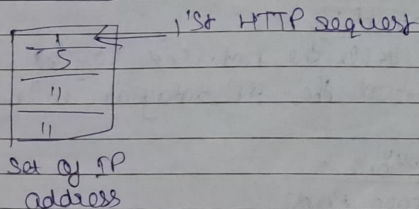 1'St HTTP request
1
5
"
"
Set of IP
address